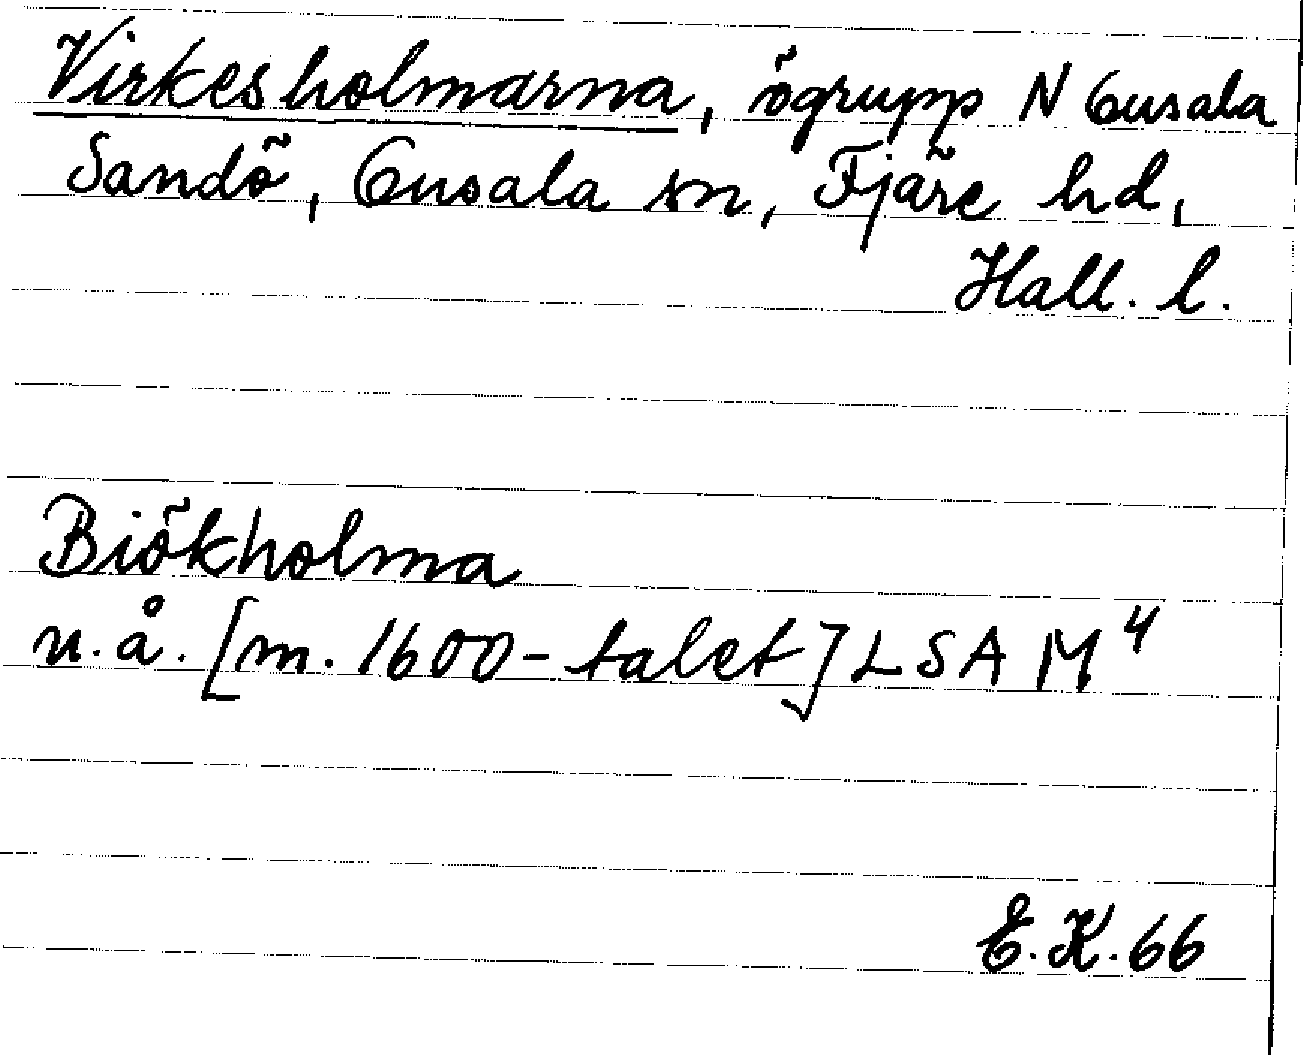 Virkesholmarna, ögrupp N Onsala
Sandö, Onsala sn, Fjäre hd,
Hall. l.
Biökholma
u.å. [m. 1600-talet] LSA M⁴
E.K. 66